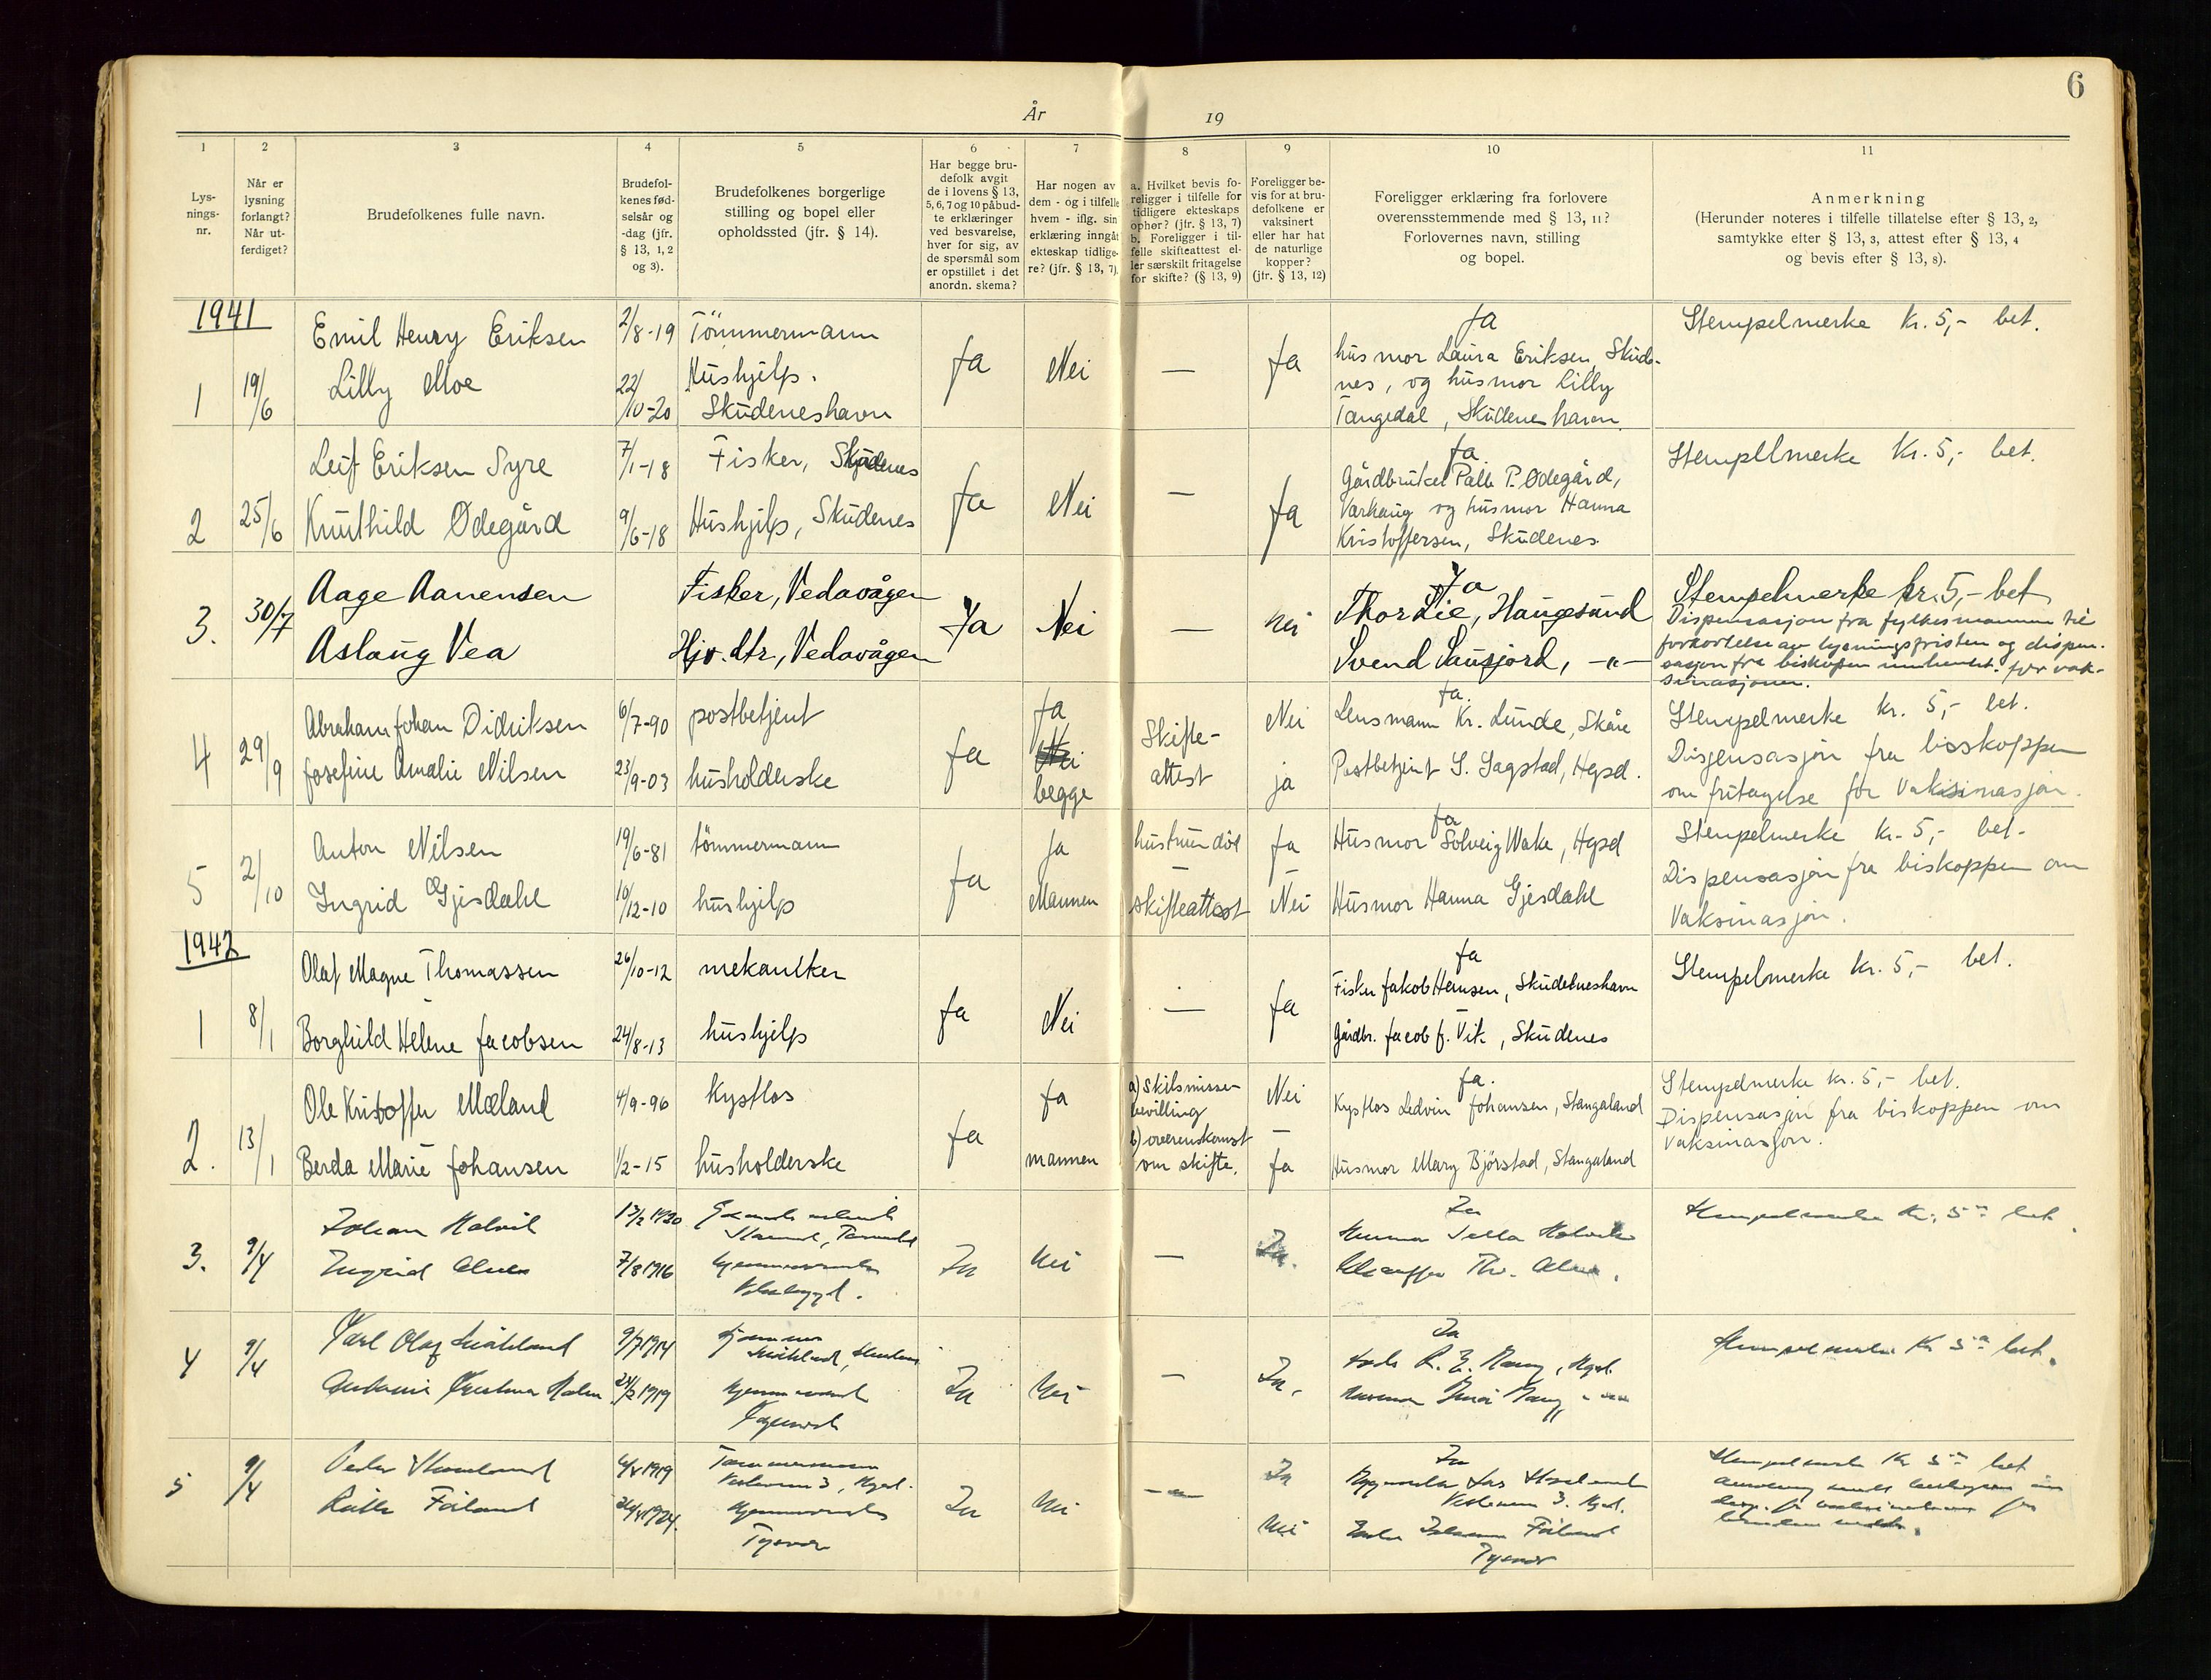 6
År 19
1
2
3
4
5
6
7
8
9
10
11
Lys-
nings-
nr.
Når er
lysning
forlangt?
Når ut-
ferdiget?
Brudefolkenes fulle navn.
Brudefol-
kenes fød-
selsår og
-dag (jfr.
§ 13, 1, 2
og 3).
Brudefolkenes borgerlige
stilling og bopel eller
opholdssted (jfr. § 14).
Har begge bru-
defolk avgit
de i lovens § 13,
5, 6, 7 og 10 påbud-
te erklæringer
ved besvarelse,
hver for sig, av
de spørsmål som
er opstillet i det
anordn. skema?
Har nogen av
dem - og i tilfelle
hvem - iflg. sin
erklæring inngåt
ekteskap tidlige-
re? (jfr. § 13, 7)
a. Hvilket bevis fo-
religger i tilfelle for
tidligere ekteskaps
ophør? (jfr. § 13, 7)
b. Foreligger i til-
felle skifteattest el-
ler særskilt fritagelse
for skifte? (§ 13, 9)
Foreligger be-
vis for at bru-
defolkene er
vaksinert
eller har hat
de naturlige
kopper?
(jfr. § 13, 12)
Foreligger erklæring fra forlovere
overensstemmende med § 13, 11?
Forlovernes navn, stilling
og bopel.
Anmerkning
(Herunder noteres i tilfelle tillatelse efter § 13, 2,
samtykke efter § 13, 3, attest efter § 13, 4
og bevis efter § 13, 8).
1941
1
19/6
Emil Henry Eriksen
Lilly Moe
2/8-19
22/10-20
Tömmermann
Hushjelp.
Skudeneshavn
Ja
Nei
—
Ja
Ja
husmor Laura Eriksen, Skude-
nes, og husmor Lilly
Tangedal, Skudeneshavn.
Stempelmerke Kr. 5,- bet.
2
25/6
Leif Eriksen Syre
Knuthild Ødegård
7/1-18
9/6-18
Fisker, Skudenes
Hushjelp, Skudenes
Ja
Nei
—
Ja
Ja.
Gårdbruker Palle P. Ødegård,
Varhaug og husmor Hanna
Kristoffersen, Skudenes.
Stempllmerke Kr. 5,- bet.
3.
30/7
Aage Aanensen
Aslaug Vea
Fisker, Vedavågen
Hjv. dtr, Vedavågen
Ja
Nei
—
Nei
Ja
Thor Lie, Haugesund
Svend Sausjord, -"-
Stempelmerke kr. 5,- bet
Dispensasjon fra fylkesmannen til
forkortelse av lysningsfristen og dispen-
sasjon fra biskopen innhentet. for vak-
sinasjonen.
4
29/9
Abraham Johan Didriksen
Josefine Amalie Nilsen
6/7-90
23/9-03
postbetjent
husholderske
Ja
Ja
Nei
begge
Skifte-
attest
Nei
ja
Ja.
Lensmann Kr. Lunde, Skåre
Postbetjent S. Sagstad, Hgsd.
Stempelmerke kr. 5,- bet.
Dispensasjon fra bisskoppen
om fritagelse for Vaksinasjon.
5
2/10
Anton Nilsen
Ingrid Gjesdahl
19/6-81
10/12-10
tömmermann
hushjelp
Ja
Ja
Mannen
hustrun död
—
skifteattest
Ja
—
Nei
Ja
Husmor Solveig Wake, Hgsd
Husmor Hanna Gjesdahl
Stempelmerke kr. 5,- bet.
Dispensasjon fra biskoppen om
Vaksinasjon.
1942
1
8/1
Olaf Magne Thomassen
Borghild Helene Jacobsen
26/10-12
24/8-13
mekaniker
hushjelp
Ja
Nei
—
Ja
Ja
Fisker Jakob Hansen, Skudeneshavn
Gårdbr. Jacob J. Vik, Skudenes
Stempelmerke Kr. 5,- bet.
2.
13/1
Ole Kristoffer Mæland
Berda Marie Johansen
4/9-96
1/2-15
Kystlos
husholderske
Ja
Ja
mannen
a) Skilsmisse-
bevilling
b) overenskomst
om skifte.
Nei
—
Ja
Ja.
Kystlos Ledvin Johansen, Stangaland
Husmor Mary Björstad, Stangaland
Stempelmerke kr. 5,- bet.
Dispensasjon fra biskoppen om
Vaksinasjon.
3.
9/4
Johan
Ingrid
7/8 1916
Ja
Nei
—
Ja.
Ja
Stempelmerke Kr. 5 bet.
4
9/4
Karl Olaf
9/7 1914
Ja
Nei
—
Ja.
Ja
Stempelmerke Kr 5 bet.
5
9/4
Peder
Tømmermann
Tysvær
Ja
Nei
—
Ja
Nei
Ja
Tysvær
Stempelmerke Kr 5 bet